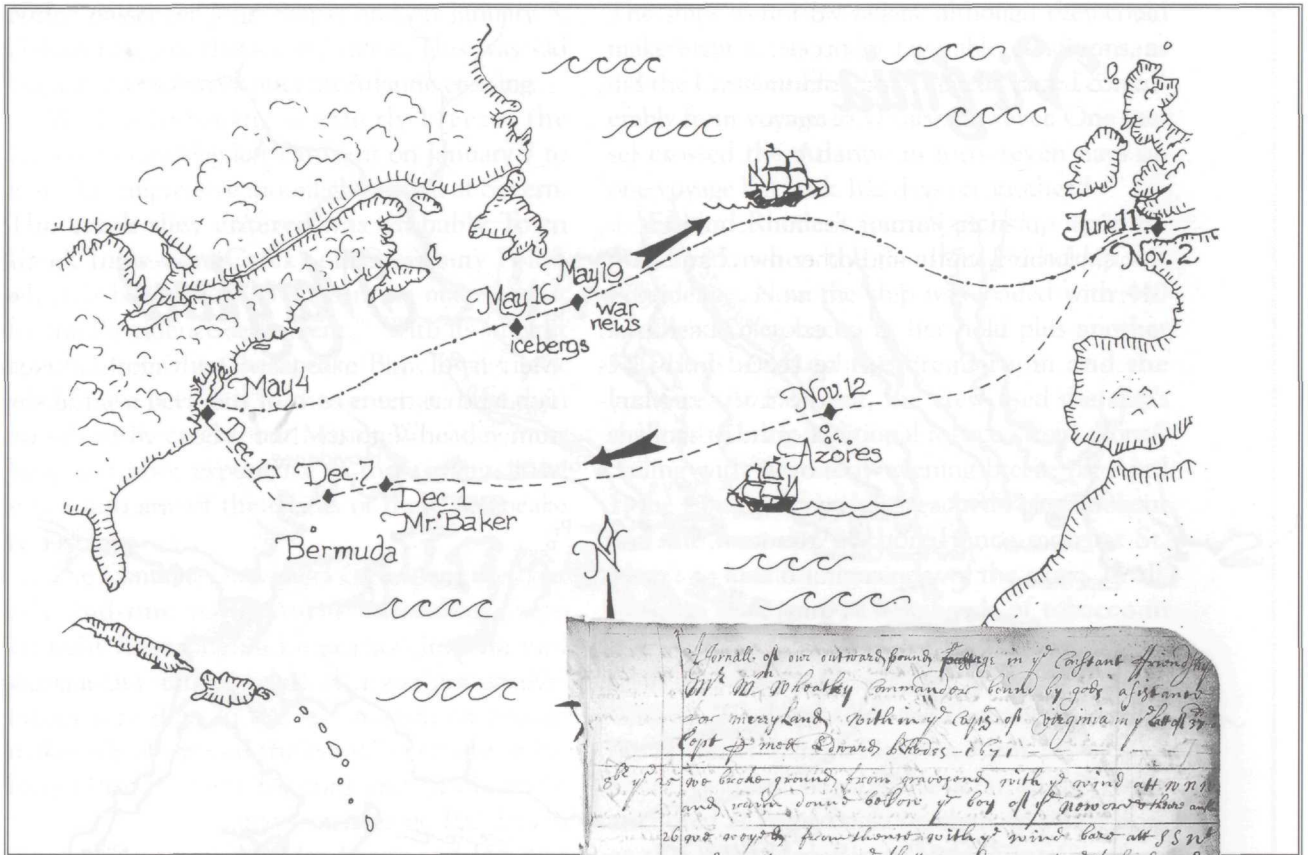 June 11
Nov. 2
May 19
war
news
May 16
icebergs
May 4
Nov. 12
Azores
Dec. 7
Dec. 1
Mr. Baker
Bermuda
Jornall of our outward bound passage in yᵉ Constant friendship
Mʳ M Wheatley Commandor bound by gods asistance
for merryland within yᵉ Capes of virginia in yᵉ
kept mee Edward Rhodes 1671
yᵉ wee broke ground from gravesend with yᵉ wind att WNW
and downe below yᵉ boy of yᵉ
26 wee from thence with yᵉ wind att SSW